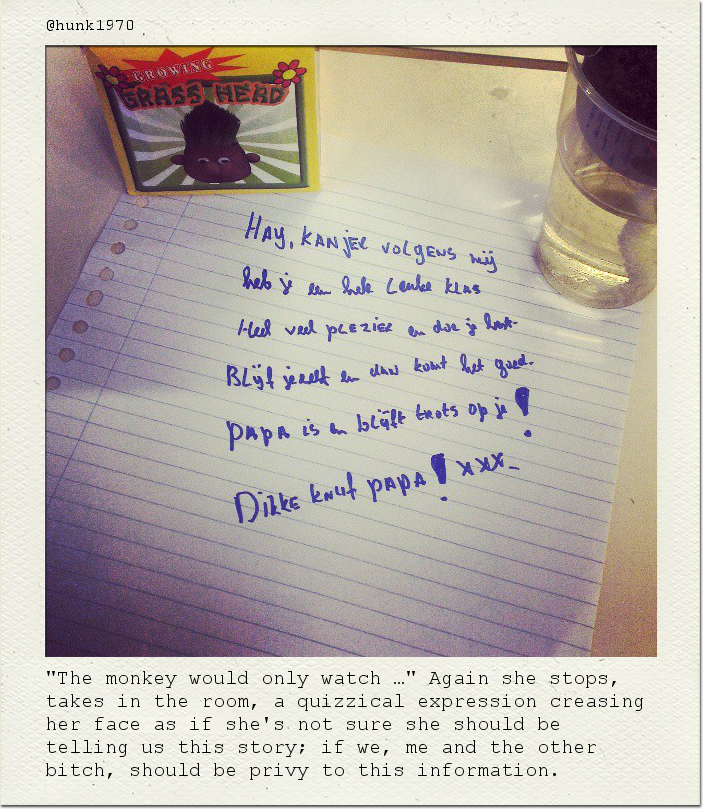 @hunk1970
GROWING
GRASS HEAD
HAY, KANJER VOLGENS mij
heb je een hele Leuke KLAS
Heel veel PLEZIER en doe je best.
Blijf jezelf en dan komt het goed.
PAPA is en blijft trots op je!
Dikke knuf PAPA! xxx-
"The monkey would only watch …" Again she stops,
takes in the room, a quizzical expression creasing
her face as if she's not sure she should be
telling us this story; if we, me and the other
bitch, should be privy to this information.